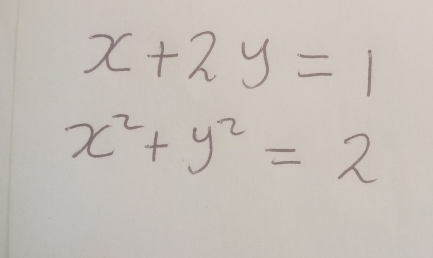 x + 2y = 1
x² + y² = 2